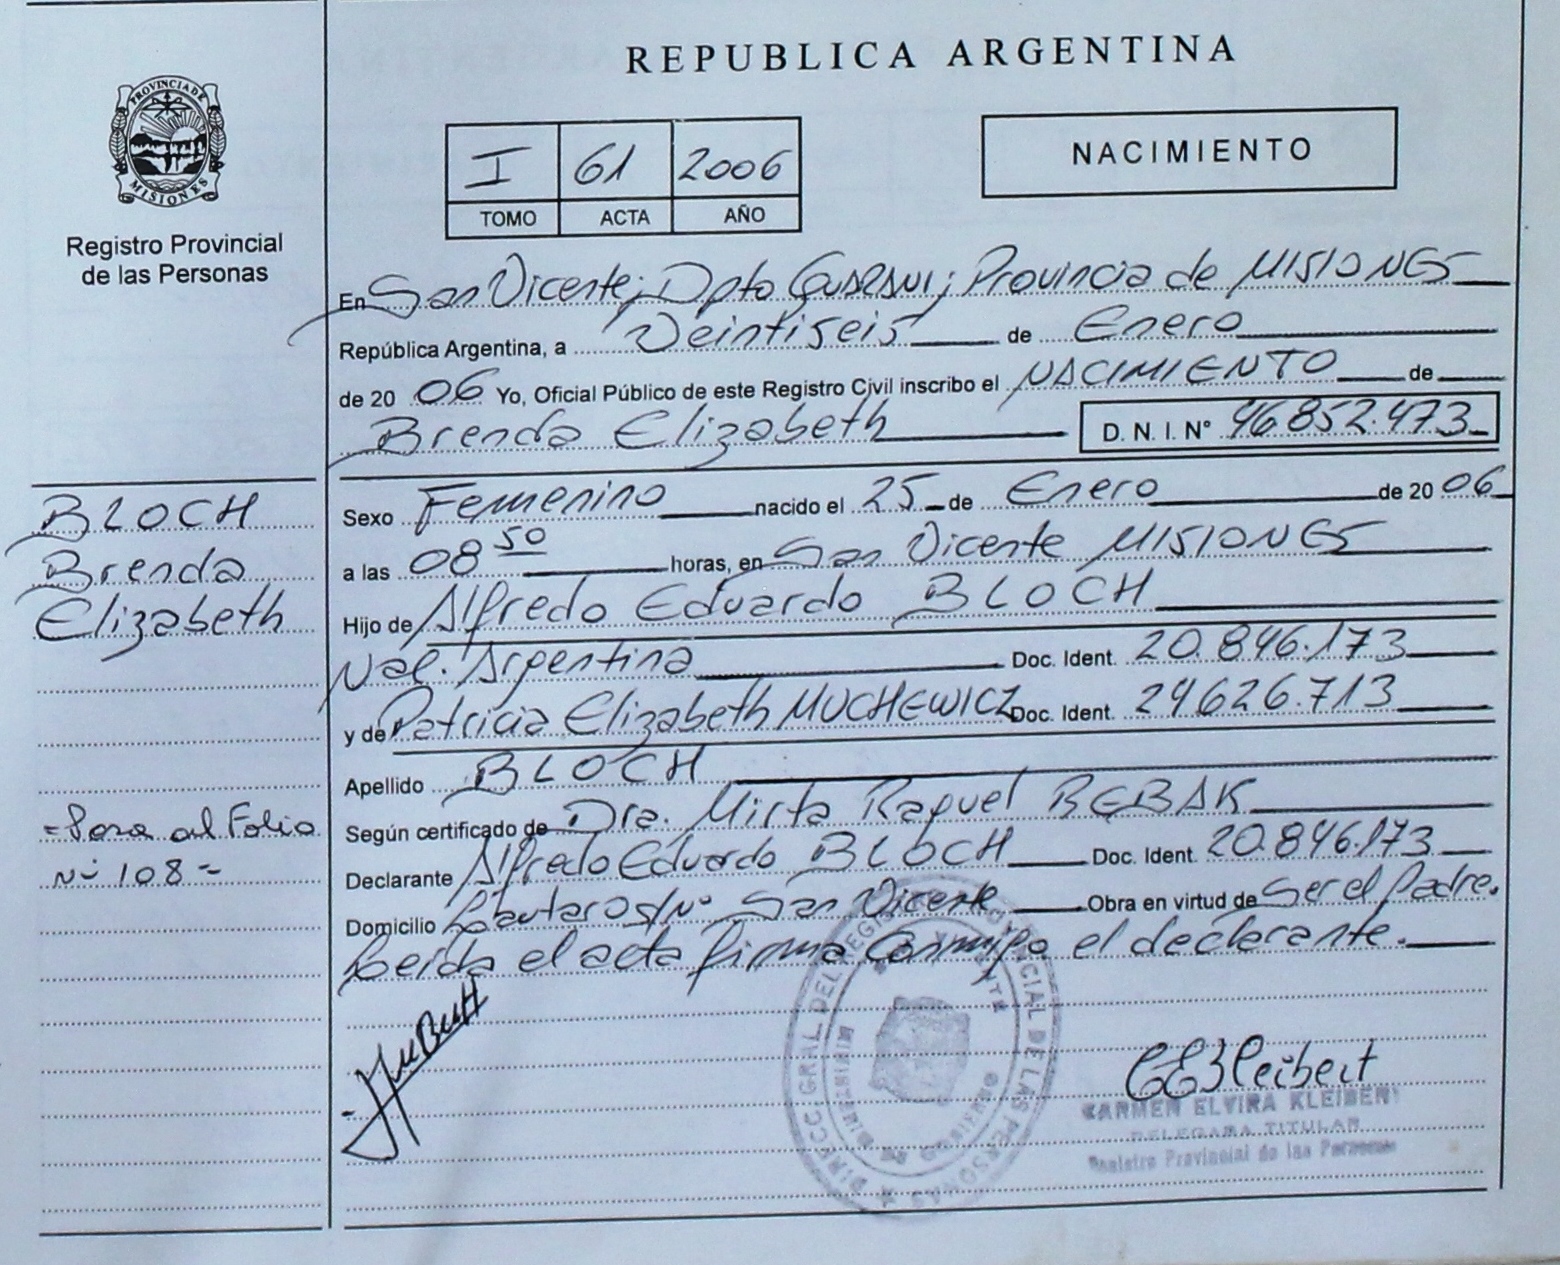 REPUBLICA ARGENTINA
PROVINCIA DE
MISIONES
Registro Provincial
de las Personas
I 61 2006
TOMO ACTA AÑO
NACIMIENTO
En San Vicente; Dpto Guaraní; Provincia de MISIONES
República Argentina, a Veintiseis de Enero
de 20 06 Yo, Oficial Público de este Registro Civil inscribo el NACIMIENTO de
Brenda Elizabeth D. N. I. N° 46.852.473
BLOCH
Brenda
Elizabeth
Sexo Femenino nacido el 25 de Enero de 20 06
a las 08 50 horas, en San Vicente MISIONES
Hijo de Alfredo Eduardo BLOCH
Nal. Argentina Doc. Ident. 20.846.173
y de Patricia Elizabeth MUCHEWICZ Doc. Ident. 24626.713
Apellido BLOCH
Según certificado de Dra. Mirta Raquel BEBAK
Declarante Alfredo Eduardo BLOCH Doc. Ident. 20.846.173
Domicilio Lautaro s/n° San Vicente Obra en virtud de Ser el Padre.
Leida el acta firma conmigo el declarante.
=Pasa al Folio
N° 108=
DIRECC GRAL DEL REGISTRO PROVINCIAL DE LAS PERSONAS
CARMEN ELVIRA KLEIBERT
DELEGADA TITULAR
Registro Provincial de las Personas